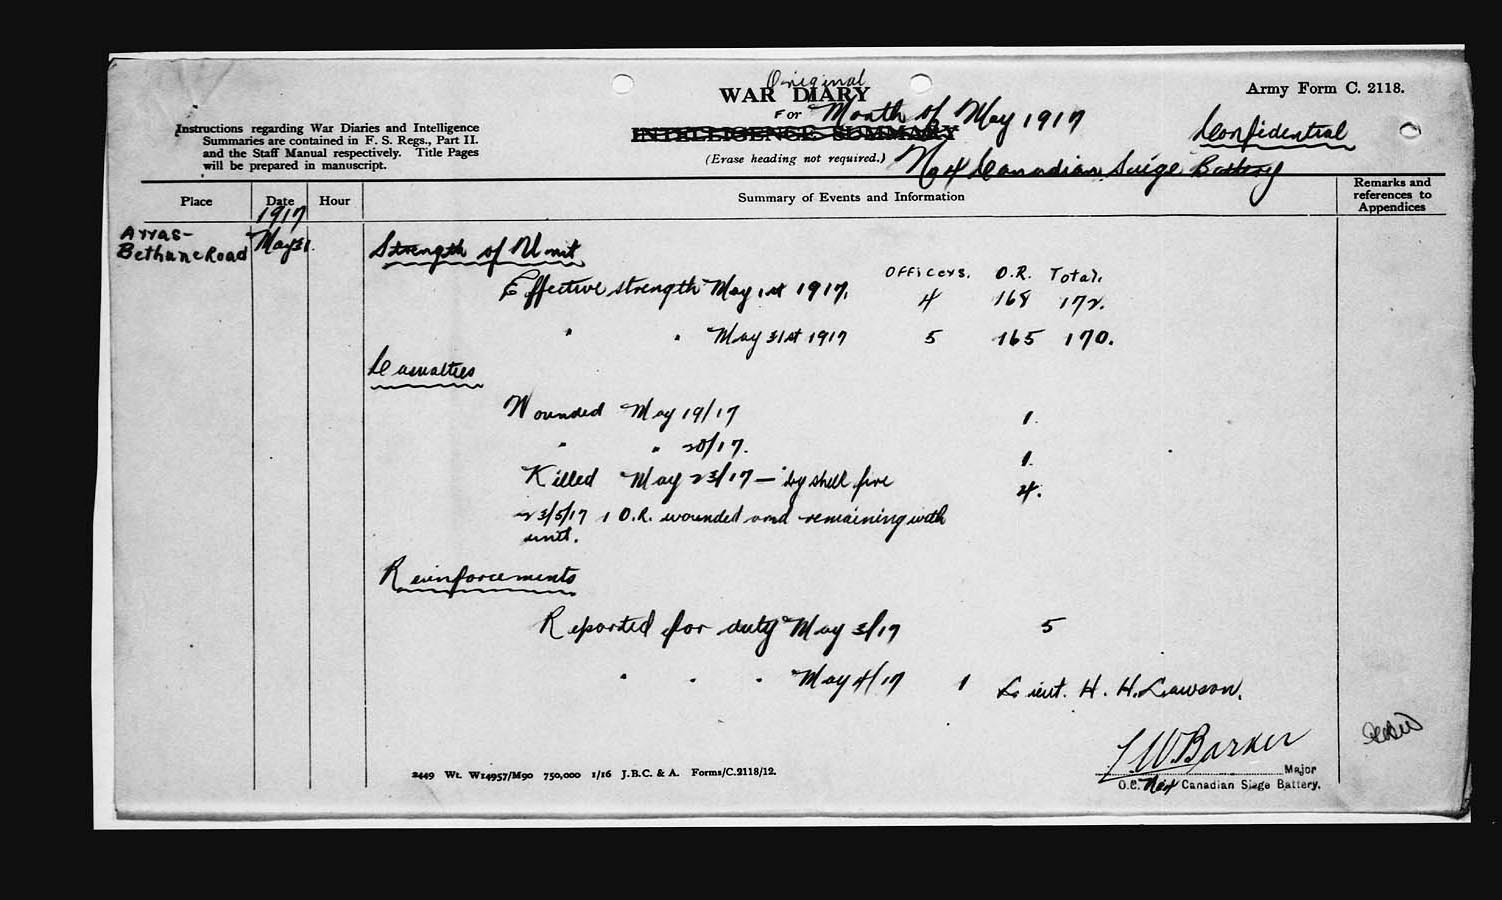 Original
WAR DIARY
Army Form C. 2118.
FOR Month of May 1917
INTELLIGENCE SUMMARY
Confidential
Instructions regarding War Diaries and Intelligence
Summaries are contained in F. S. Regs., Part II.
and the Staff Manual respectively. Title Pages
will be prepared in manuscript.
(Erase heading not required.)
No 4 Canadian Seige Battery
Place Date Hour Summary of Events and Information Remarks and references to Appendices
1917
Arras-
Bethune Road May 31.
Strength of Unit
Officers. O.R. Total.
Effective strength May 1st 1917. 4 168 172.
" " May 31st 1917 5 165 170.
Casualties
Wounded May 19/17 1.
" " 20/17. 1.
Killed May 23/17 — by shell fire 4.
23/5/17 1 O.R. wounded and remaining with
unit.
Reinforcements
Reported for duty May 3/17 5
" " " May 4/17 1 Lieut. H. H. Lawson.
Barker
Major
O.C. No 4 Canadian Siege Battery.
2449 Wt. W14957/M90 750,000 1/16 J.B.C. & A. Forms/C.2118/12.